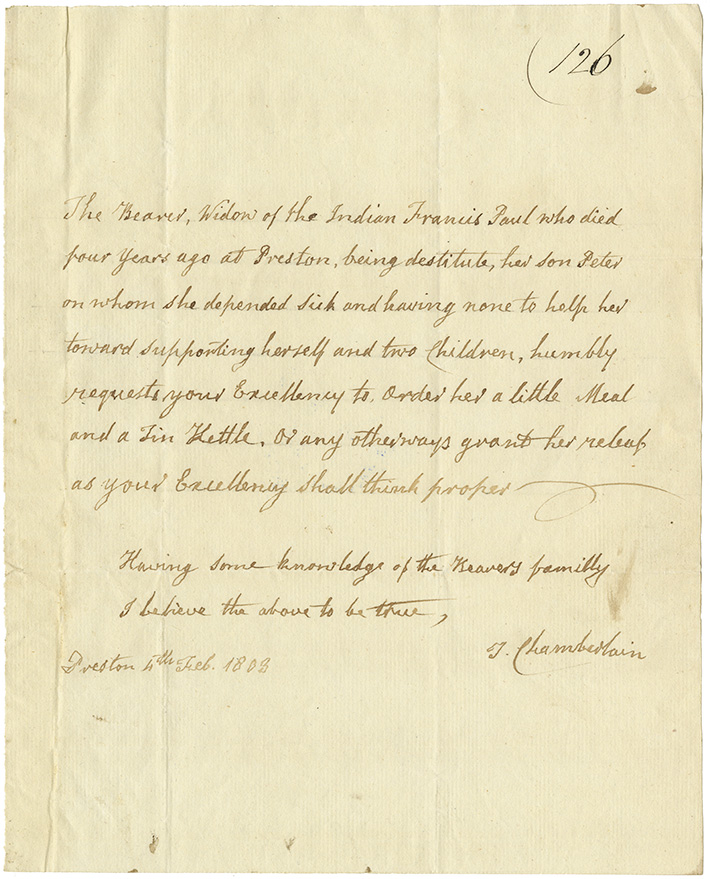 (126
The Bearer, Widow of the Indian Francis Paul who died
four Years ago at Preston, being destitute, her son Peter
on whom she depended sick and having none to help her
toward supporting herself and two Children, humbly
requests your Excellency to Order her a little Meal
and a Tin Kettle, Or any otherways grant her releaf
as your Excellency shall think proper
Having some knowledge of the Bearers familly
I believe the above to be true,
T. Chamberlain
Preston 4th Feb. 1803